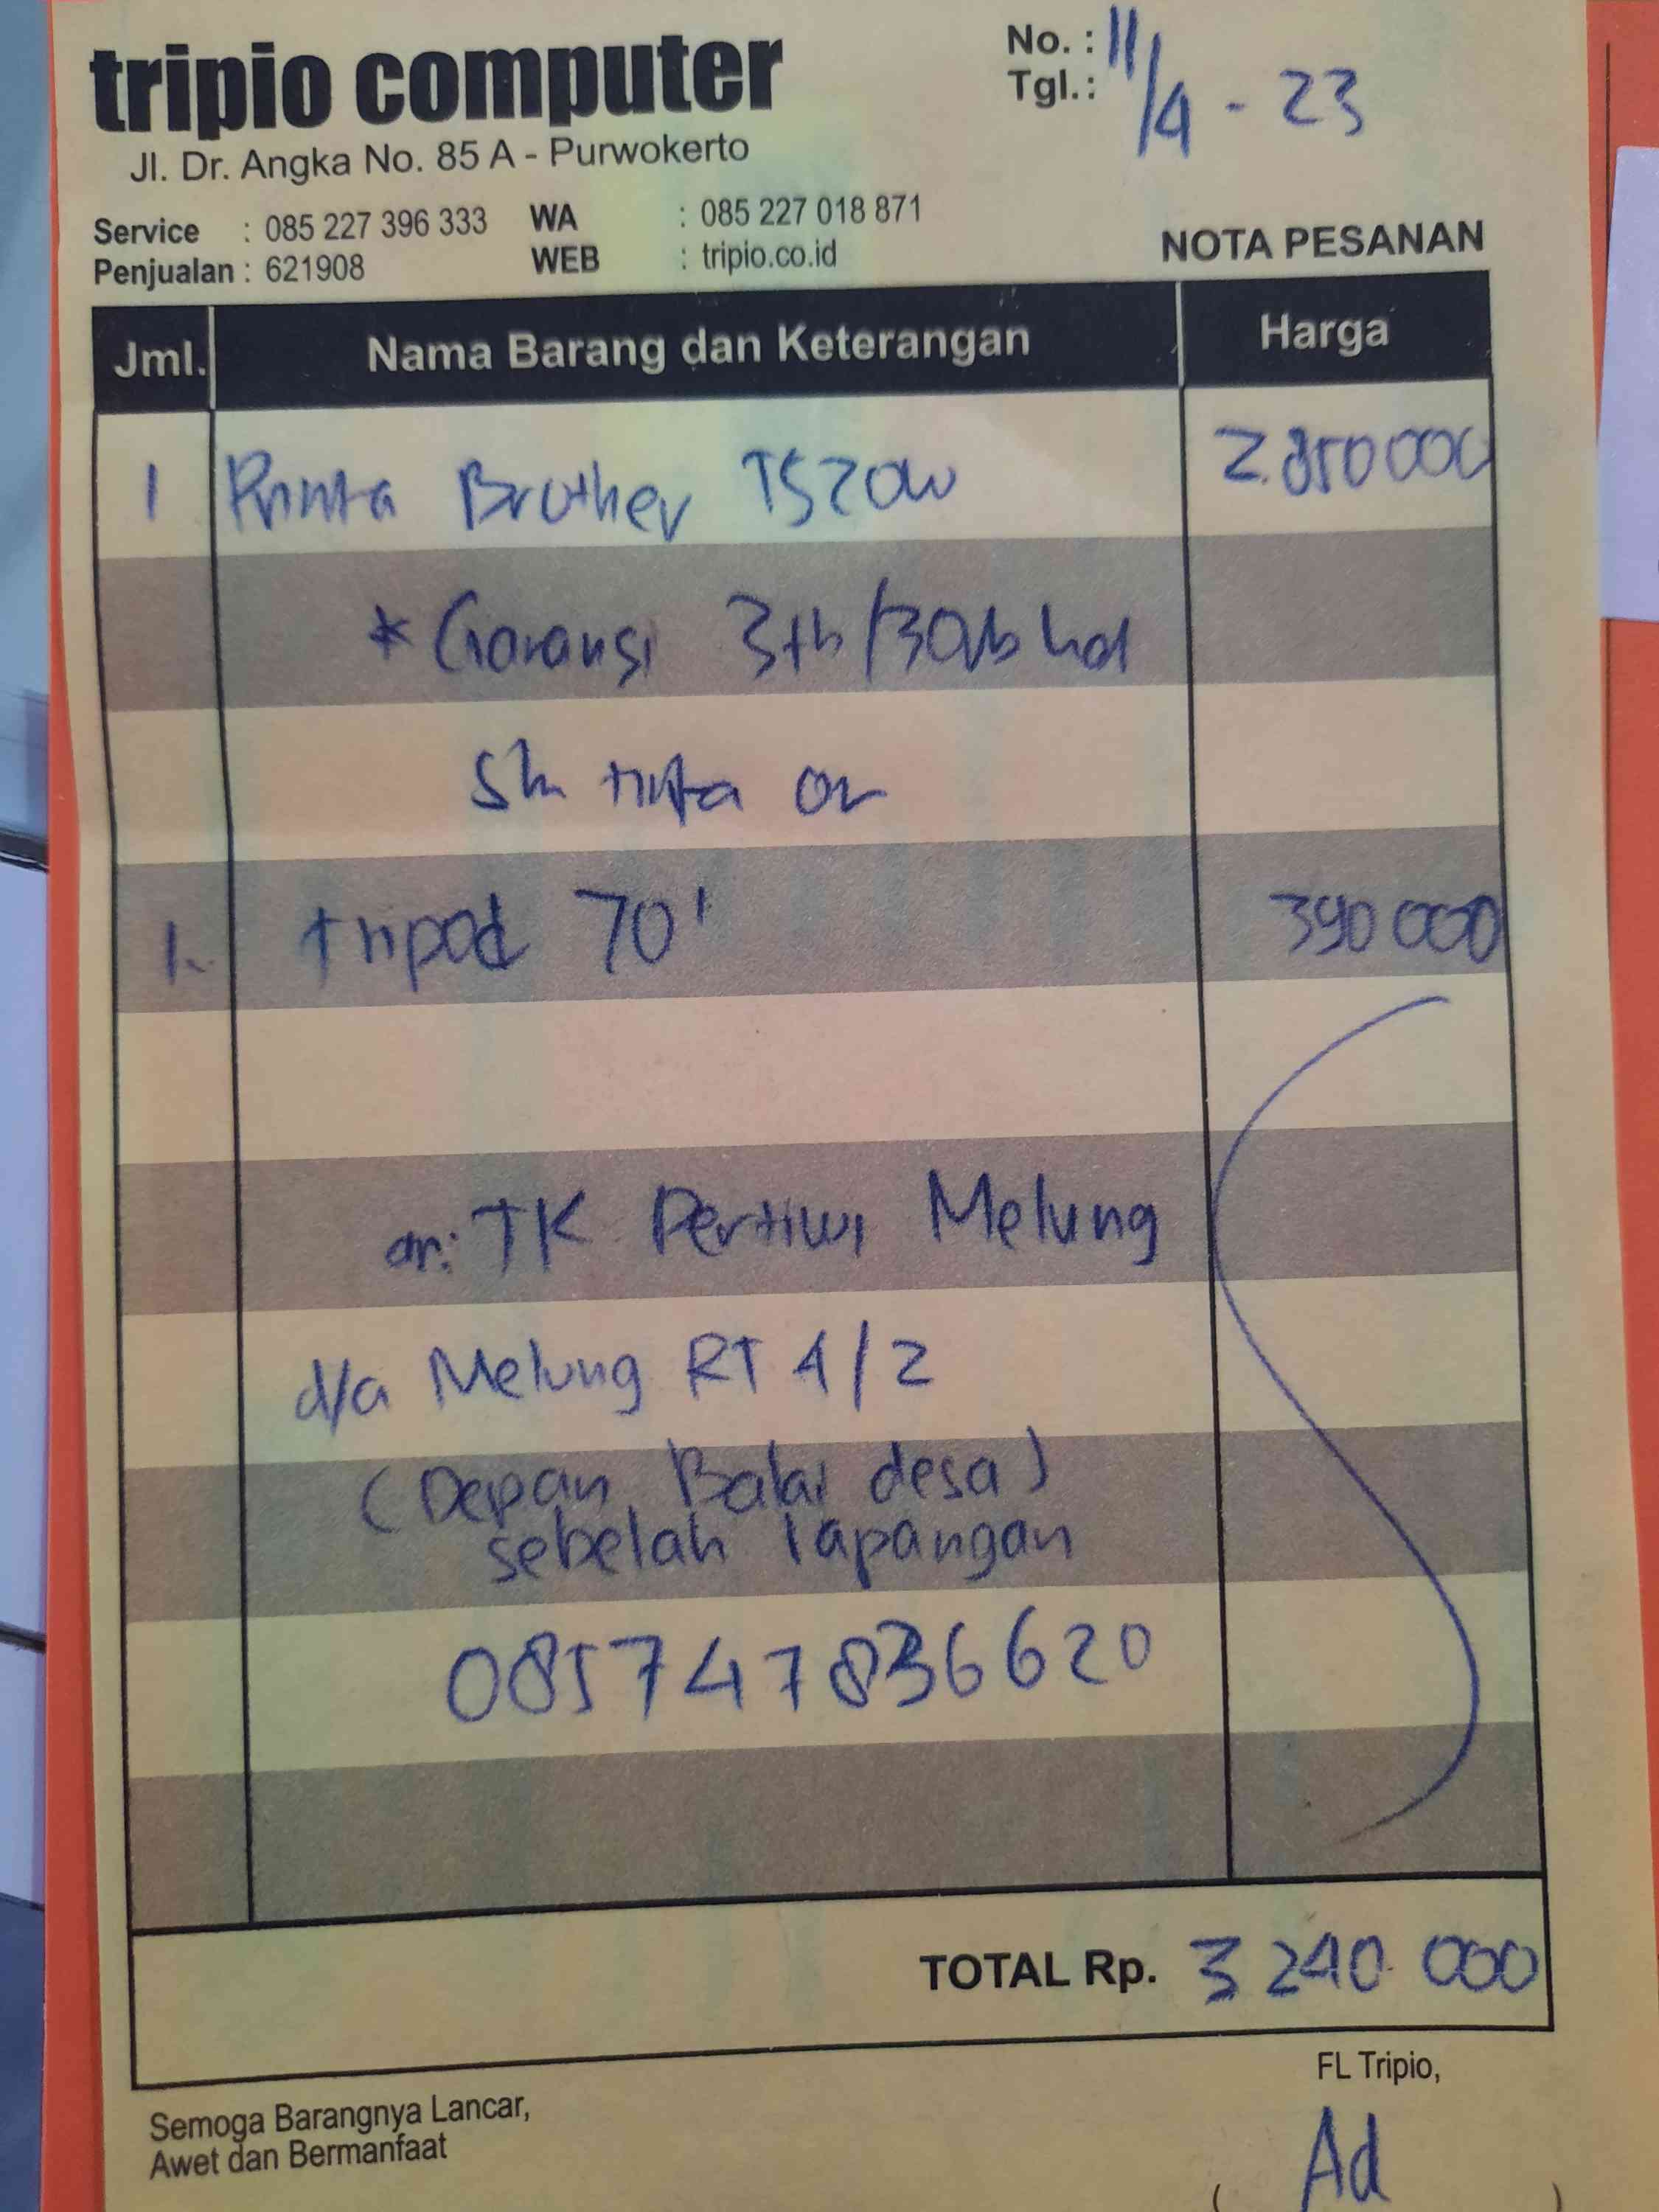 tripio computer
Jl. Dr. Angka No. 85 A - Purwokerto
No. :
Tgl.: 11/4 - 23
Service : 085 227 396 333 WA : 085 227 018 871
Penjualan : 621908 WEB : tripio.co.id
NOTA PESANAN
Jml. Nama Barang dan Keterangan Harga
1 Printer Brother T520W 2.850 000
* Garansi 3th/30rb hal
sh tinta or
1. tripod 70' 390 000
an: TK Pertiwi Melung
d/a Melung RT 4/2
(Depan Balai desa)
sebelah lapangan
085747836620
TOTAL Rp. 3 240 000
FL Tripio,
Semoga Barangnya Lancar,
Awet dan Bermanfaat
Ad
( )